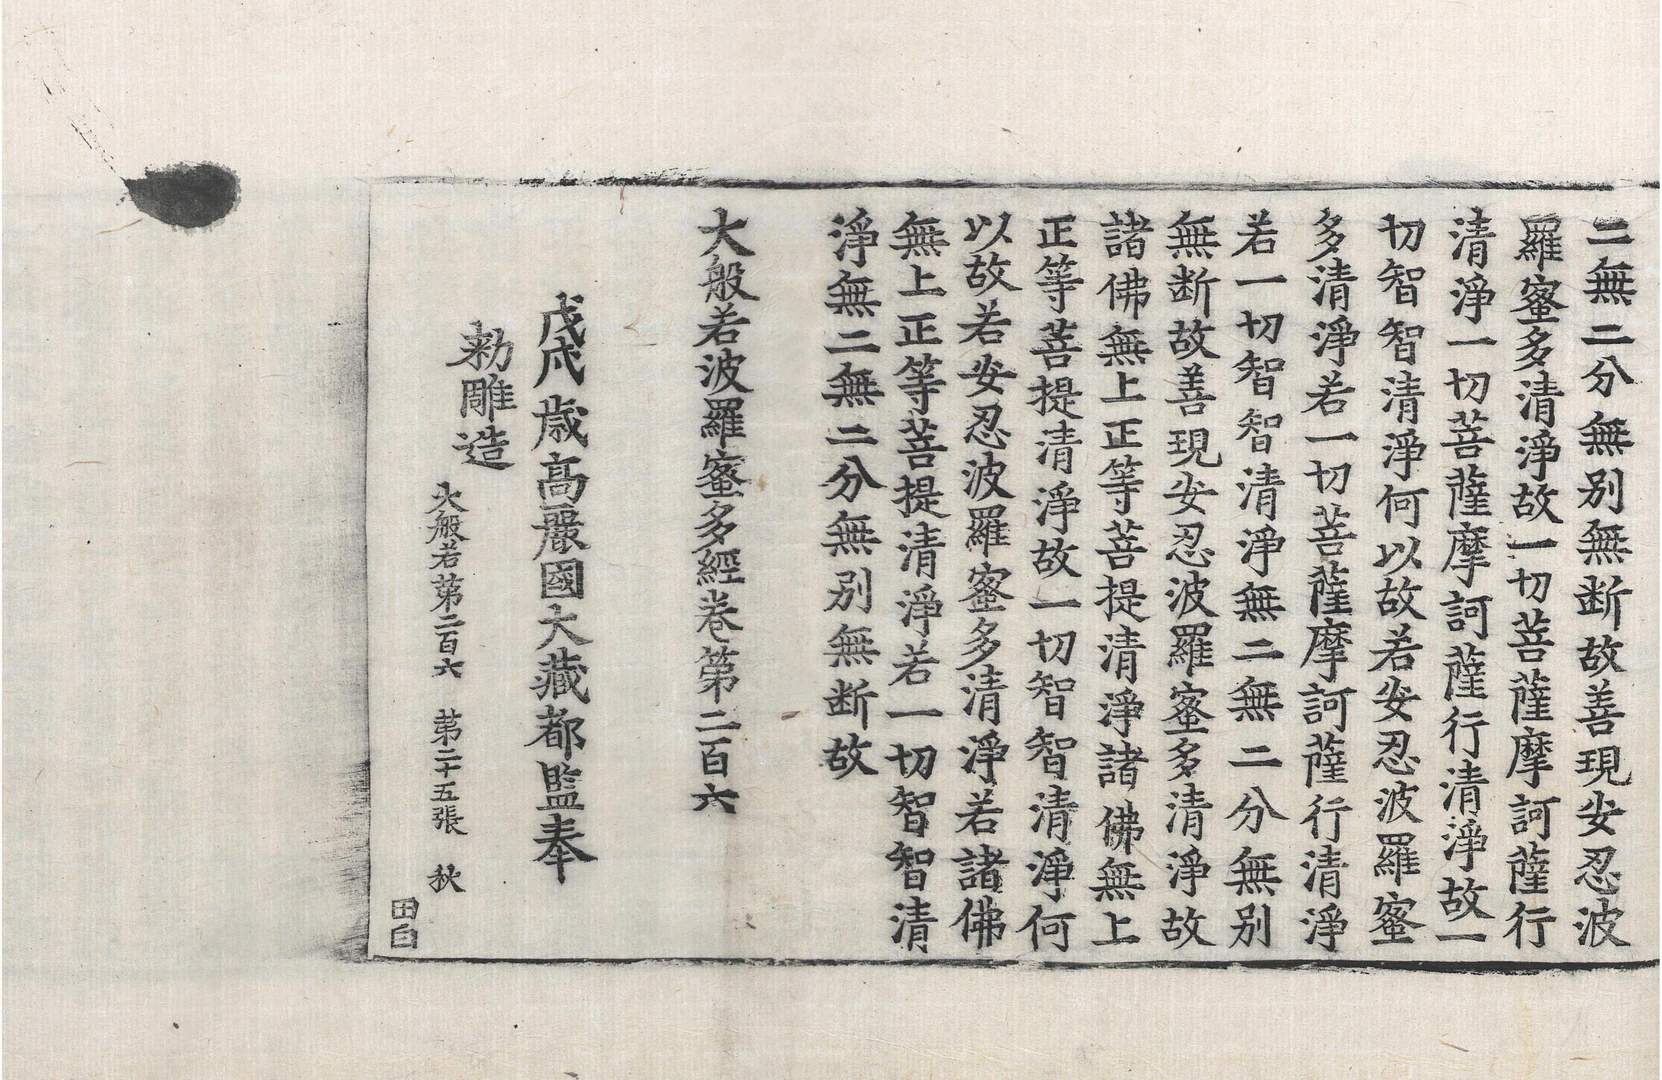 二無二分無別無断故善現安忍波
羅蜜多清淨故一切菩薩摩訶薩行
清淨一切菩薩摩訶薩行清淨故一
切智智清淨何以故若安忍波羅蜜
多清淨若一切菩薩摩訶薩行清淨
若一切智智清淨無二無二分無別
無断故善現安忍波羅蜜多清淨故
諸佛無上正等菩提清淨諸佛無上
正等菩提清淨故一切智智清淨何
以故若安忍波羅蜜多清淨若諸佛
無上正等菩提清淨若一切智智清
淨無二無二分無別無断故
大般若波羅蜜多經卷第二百六
戊戌歲高麗國大藏都監奉
勑雕造
大般若第二百六 第二十五張 秋